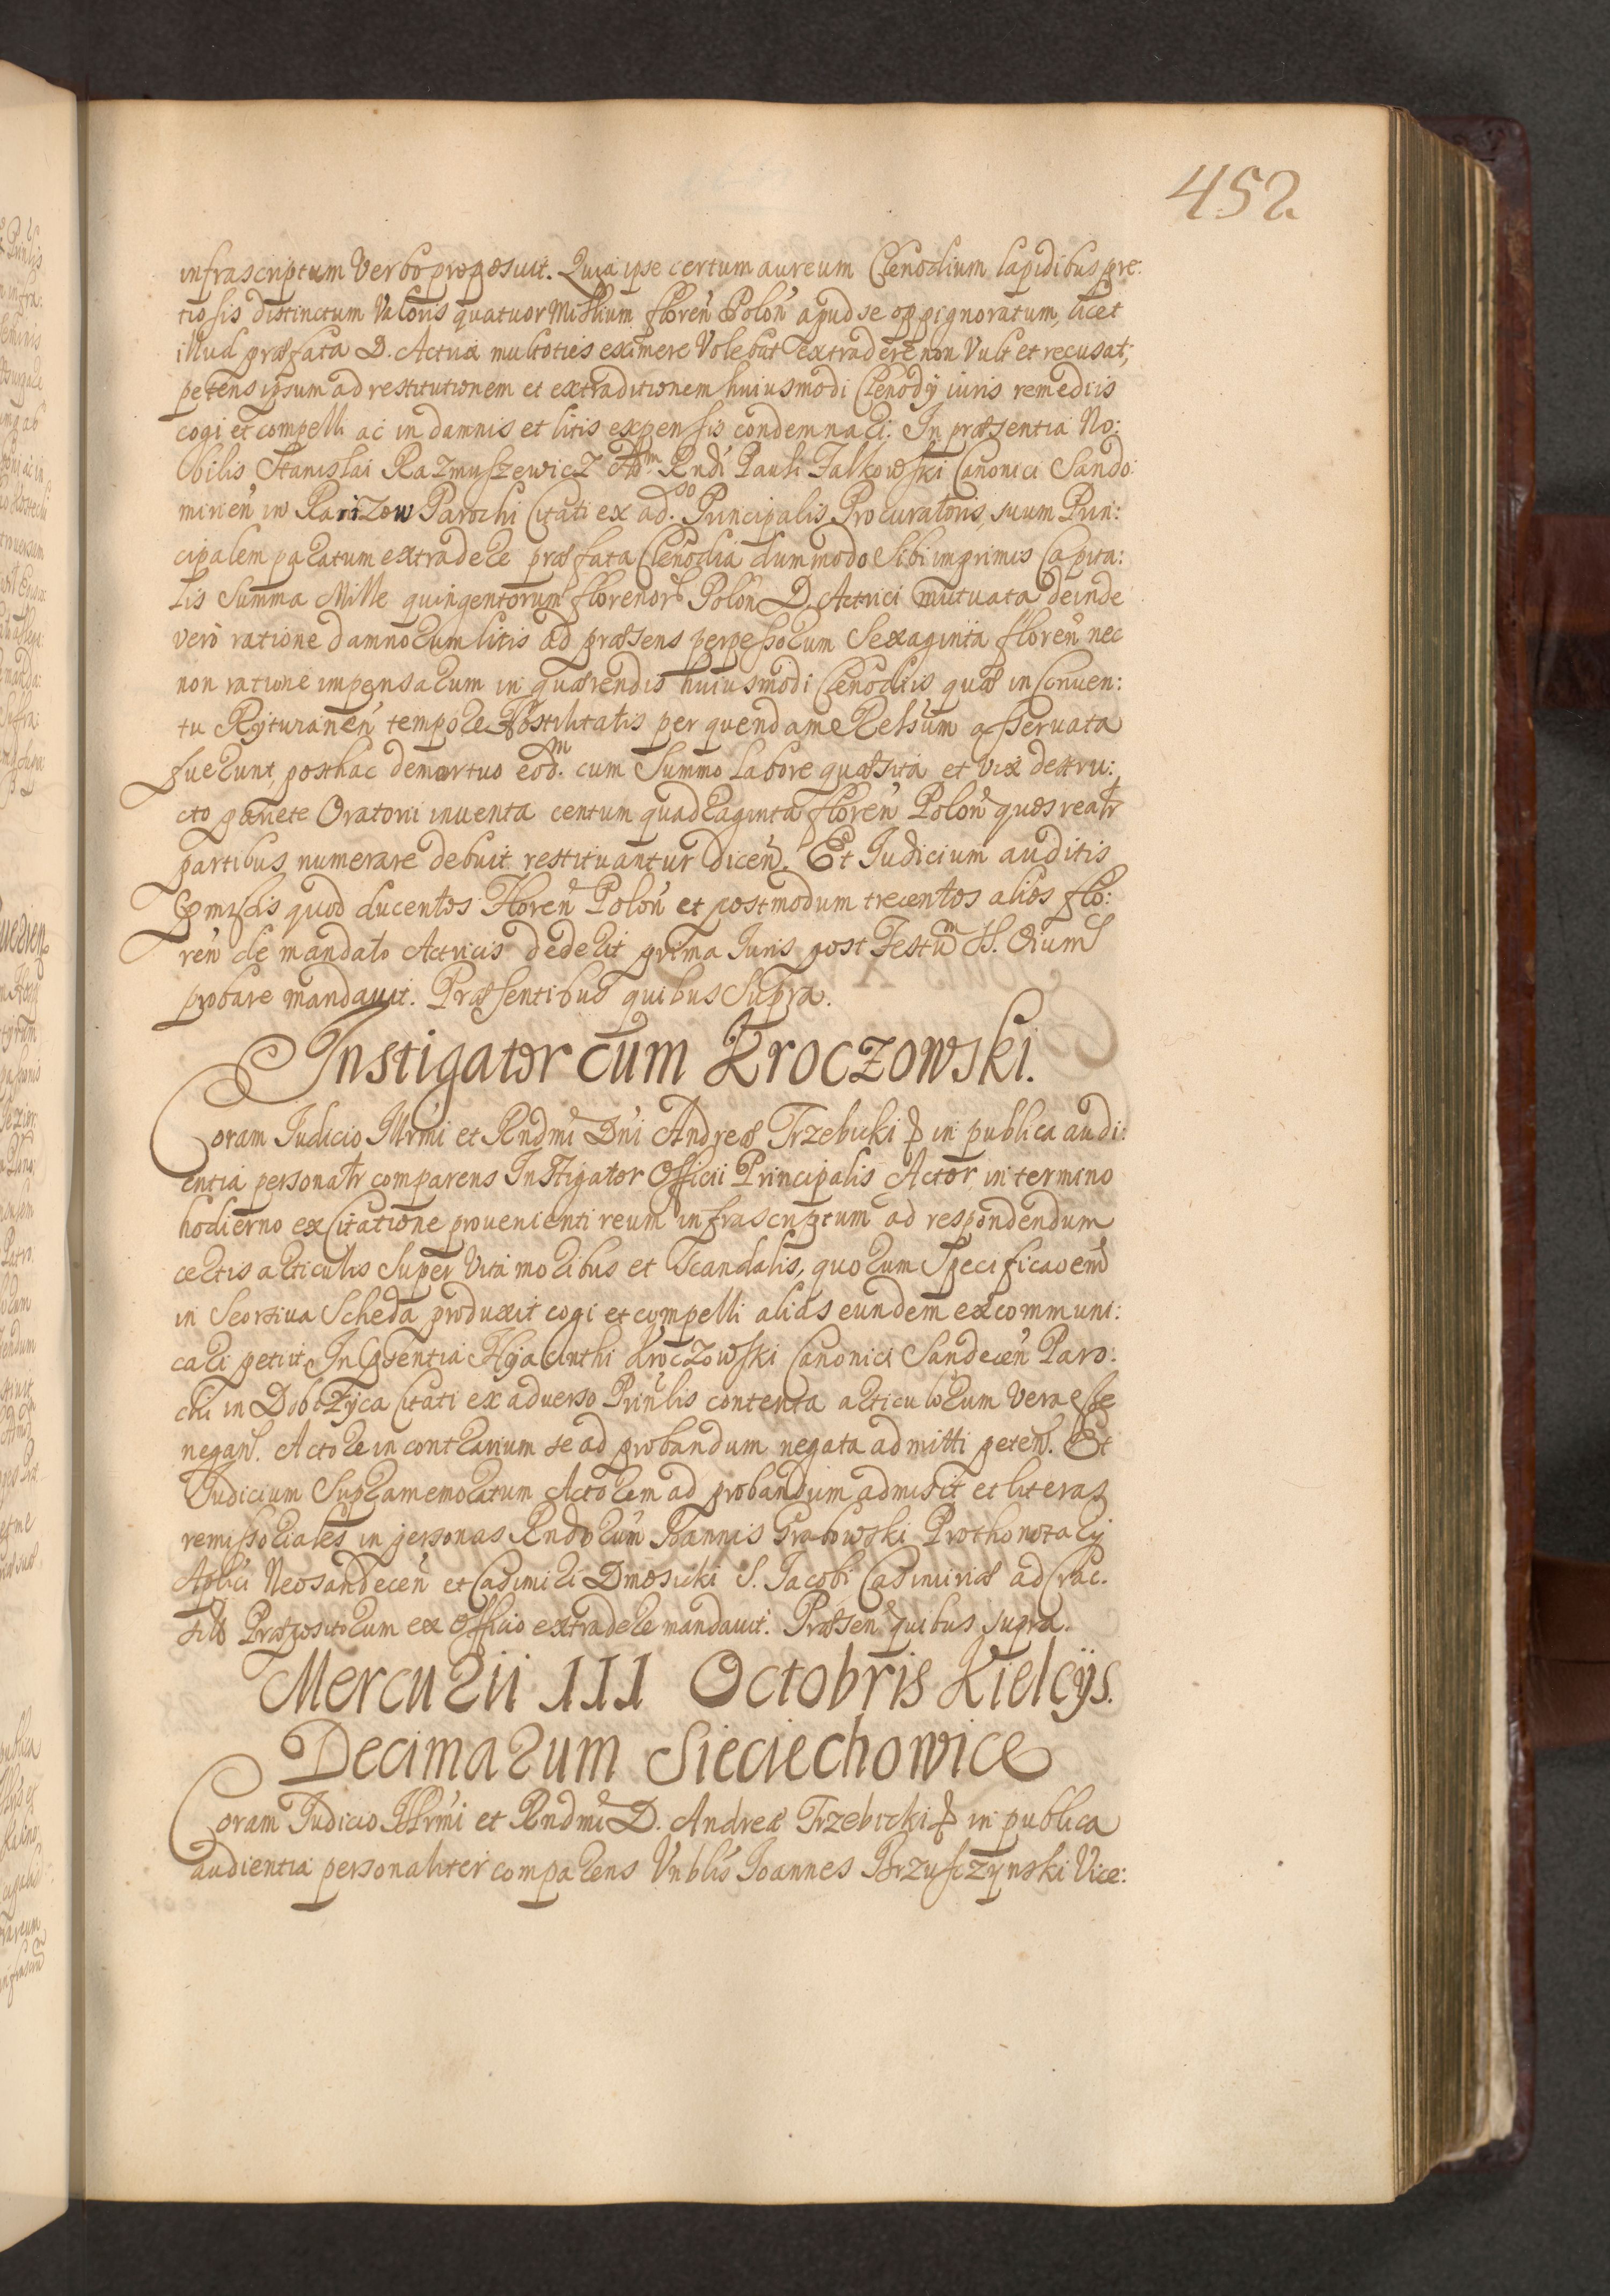 452
infrascriptum Verbo proposuit. Quia ipse certum aureum Clenodium lapidibus pre:
tiosis distinctum Valoris quatuor Millium floreń Poloń apud se oppignoratum, licet
illud præfata D. Actrix multoties eximere Volebat extradere non Vult et recusat;
petens ipsum ad restitutionem et extraditionem huiusmodi Clenodÿ iuris remediis
cogi et compelli ac in damnis et litis expensis condemnari. In præsentia No:
bilis Stanislai Razmuszewicz Adm Rndi Pauli Falkowski Canonici Sando:
mirień in Ranizow Parochi Citati ex adso. Principalis Procuratoris, suum Prin:
cipalem paratum extradere præfata Clenodia dummodo Sibi imprimis Capita:
lis Summa Mille quingentorum florenor Poloń D. Actrici mutuata deinde
vero ratione damnorum litis ad præsens perpessorum Sexaginta floreń nec
non ratione impensarum in quærendis huiusmodi Clenodiis quæ in Conven:
tu Rÿturaneń tempore Hostilitatis per quendam Relsum asservata
fuerunt, posthac demortuo eodm. cum Summo labore quæsita et vix destru:
cto pariete Oratorii inventa centum quadraginta floreń Poloń quos realr
partibus numerare debuit restituantur diceń. Et Judicium auditis
præmissis quod ducentos Floreń Poloń et postmodum trecentos alios flo:
reń de mandato Actricis dederit prima Juris post Festum SS. Oium
probare mandavit. Præsentibus quibus Supra.
Instigator cum Kroczowski.
Coram Judicio Illrmi et Rndmi Dńi Andreæ Trzebicki &c in publica audi:
entia personalr comparens Instigator Officii Principalis Actor in termino
hodierno ex Citatione provenienti reum infrascriptum ad respondendum
certis articulis Super Vita moribus et Scandalis, quorum Specificaoem
in Seorsiva Scheda produxit cogi et compelli alias eundem excommuni:
cari petiit. In Præsentia Hyacinthi Kroczowski Canonici Sandeceń Paro:
chi in Dobczÿca Citati ex adverso Prinlis contenta articulorum Vera esse
negań. Actore in contrarium se ad probandum negata admitti peteń. Et
Judicium Supramemoratum Actorem ad probandum admisit et literas
remissoriales in personas Rndorum Joannis Grabowski Prothonotarÿ
Aplici Neosandeceń et Casimiri Dmosicki S. Jacobi Casimiriæ ad Crac.
Præpositorum ex Officio extradere mandavit. Præseń quibus supra.
Mercurii III Octobris Kielcÿs.
Decimarum Sieciechowice
Coram Judicio Illrmi et Rndmi D. Andreæ Trzebicki &c in publica
audientia personaliter comparens Vnblis Joannes Brzuszczynski Vice: